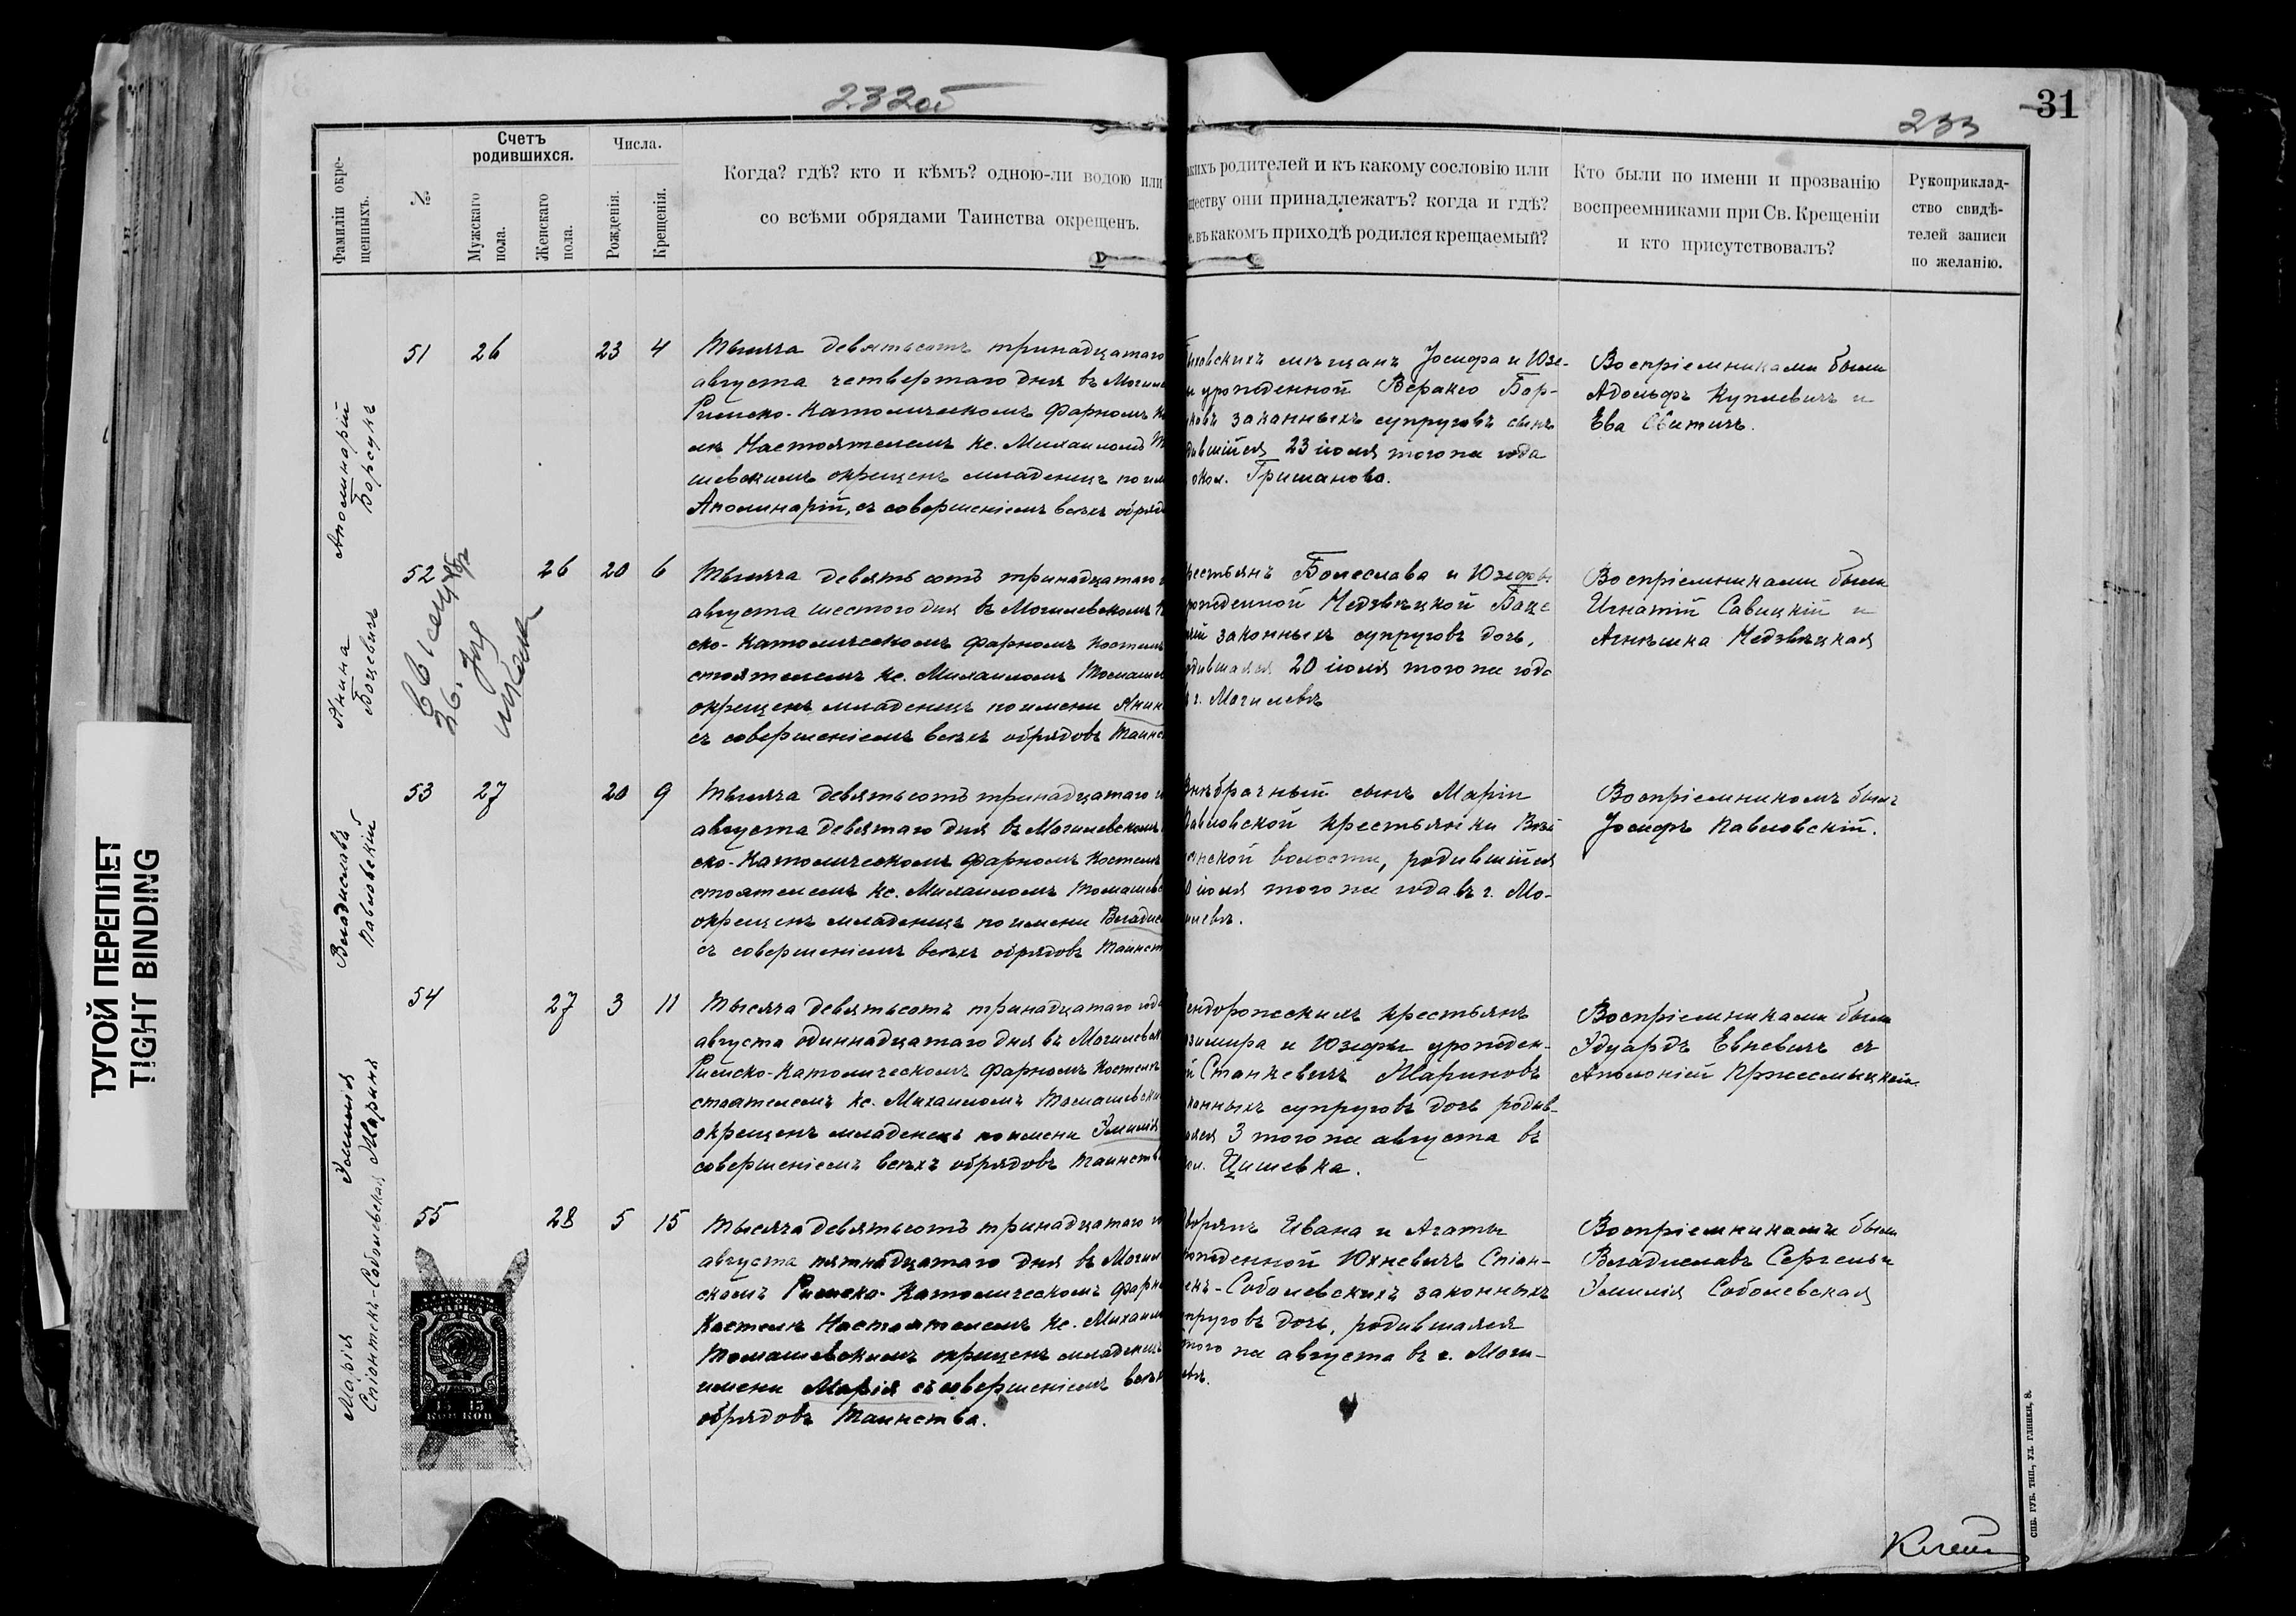 232об
233
31
Фамиліи окре-
щенныхъ.
№
Счетъ
родившихся.
Мужскаго
пола.
Женскаго
пола.
Числа.
Рожденія.
Крещенія.
Когда? гдѣ? кто и кѣмъ? одною-ли водою или
со всѣми обрядами Таинства окрещенъ.
акихъ родителей и къ какому сословію или
ществу они принадлежатъ? когда и гдѣ?
е. въ какомъ приходѣ родился крещаемый?
Кто были по имени и прозванію
воспреемниками при Св. Крещеніи
и кто присутствовалъ?
Рукоприклад-
ство свидѣ-
телей записи
по желанію.
Аполинарій
Борсукъ
51 26 23 4
Тысяча девятьсотъ тринадцатаго
августа четвертаго дня въ Могилев
Римско-Католическомъ Фарномъ К
лѣ Настоятелемъ Кс. Михаиломъ То
шевскимъ окрещенъ младенецъ по им
Аполинарій, съ совершеніемъ всѣхъ обряд
ховскихъ мѣщанъ Іосифа и Юзе-
и урожденной Вераксо Бор-
ковъ законныхъ супруговъ сынъ
дившійся 23 іюля того же года
окол. Гришаново.
Воспріемниками были
Адольфъ Купцевичъ и
Ева Свитичъ.
Янина
Боцевичъ
52 26 20 6
Тысяча девятьсотъ тринадцатаго
августа шестого дня въ Могилевскомъ Р
ско-Католическомъ Фарномъ Костелѣ
стоятелемъ Кс. Михаиломъ Томашев
окрещенъ младенецъ по имени Янин
съ совершеніемъ всѣхъ обрядовъ Таинс
рестьянъ Болеслава и Юзефы
рожденной Недзвѣцкой Боце
чей законныхъ супруговъ дочь,
одившаяся 20 іюля того же года
г. Могилевѣ
Воспріемниками были
Игнатій Савицкій и
Агнѣшка Недзвѣцкая
Владиславъ
Павловскій
53 27 20 9
Тысяча девятьсотъ тринадцатаго г
августа девятаго дня въ Могилевскомъ
ско-Католическомъ Фарномъ Костелѣ
стоятелемъ Кс. Михаиломъ Томашевс
окрещенъ младенецъ по имени Владис
съ совершеніемъ всѣхъ обрядовъ Таинст
Внѣбрачный сынъ Маріи
Павловской крестьянки
нской волости, родившійся
0 іюля того же года въ г. Мо-
илевѣ.
Воспріемникомъ былъ
Іосифъ Павловскій.
Эмилія
Маринъ
54 27 3 11
Тысяча девятьсотъ тринадцатаго года
августа одиннадцатаго дня въ Могилевск
Римско-Католическомъ Фарномъ Костелѣ
стоятелемъ Кс. Михаиломъ Томашевски
окрещенъ младенецъ по имени Эмилія
совершеніемъ всѣхъ обрядовъ Таинств
ендорожскихъ крестьянъ
зимира и Юзефы урожден-
й Станкевичъ Мариновъ
конныхъ супруговъ дочь родив-
аяся 3 того же августа въ
ол. Цишевка.
Воспріемниками были
Эдуардъ Евневичъ съ
Аполоніей Пржесмыцкой
Марія
Спіонтекъ-Соболевская
55 28 5 15
Тысяча девятьсотъ тринадцатаго го
августа пятнадцатаго дня въ Могил
скомъ Римско-Католическомъ Фарн
Костелѣ Настоятелемъ Кс. Михаил
Томашевскимъ окрещенъ младенецъ
имени Марія съ совершеніемъ всѣх
обрядовъ Таинства.
Дворянъ Ивана и Агаты
рожденной Юхневичъ Спіон-
екъ-Соболевскихъ законныхъ
упруговъ дочь, родившаяся
того же августа въ г. Моги-
евѣ.
Воспріемниками были
Владиславъ Сергель и
Эмилія Соболевская
МАРКА
15 15
КОП КОП
ТУГОЙ ПЕРЕПЛЕТ
TIGHT BINDING
СПБ. ГУБ. ТИП., УЛ. ГЛИНКИ, 8.